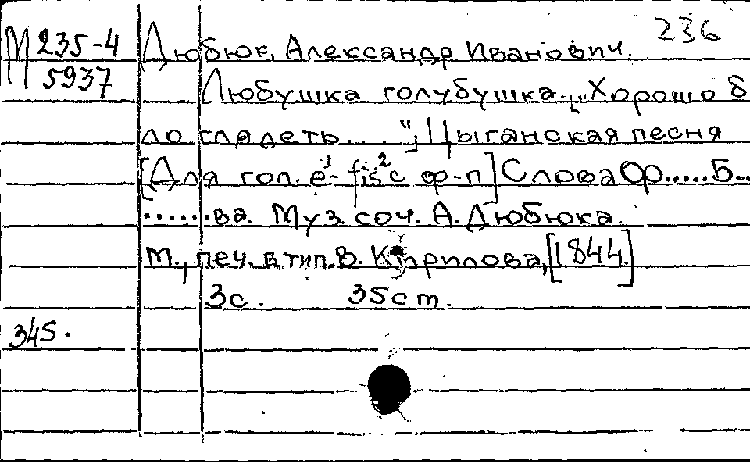 236
М 235-4
5937
Дюбюк, Александр Иванович.
Любушка голубушка. „Хорошо б
ло глядеть... "; Цыганская песня
[Для гол. e¹- fis² с ф-п] Слова Ор.....Б..
.......ва. Муз. соч. А. Дюбюка.
М., печ. в тип. В. Кирилова, [1844]
3с. 35 ст.
345.